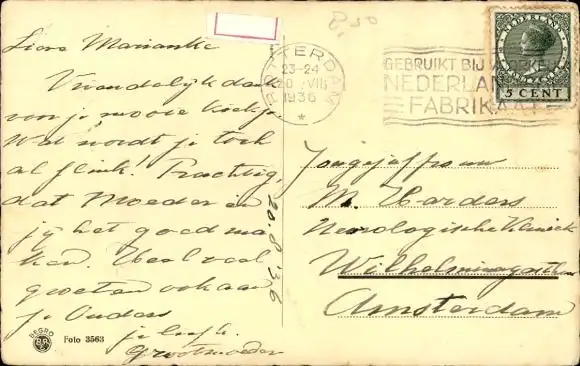 Lieve Marianke
Vriendelijk dank
voor je mooie kiekje.
Wat wordt je toch
al flink! Prachtig,
dat Moeder en
jij het goed ma
ken. Heel veel
groeten ook aan
je Ouders
je liefh.
Grootmoeder
20.8.'36
BEGRO
Foto 3563
ROTTERDAM
23-24
20 VIII
1936
GEBRUIKT BIJ
NEDERLAN
FABRIKA
NEDERLAND
5 CENT
Jongejuffrouw
M. Harders
Neurologische Kliniek
Wilhelminagasthuis
Amsterdam